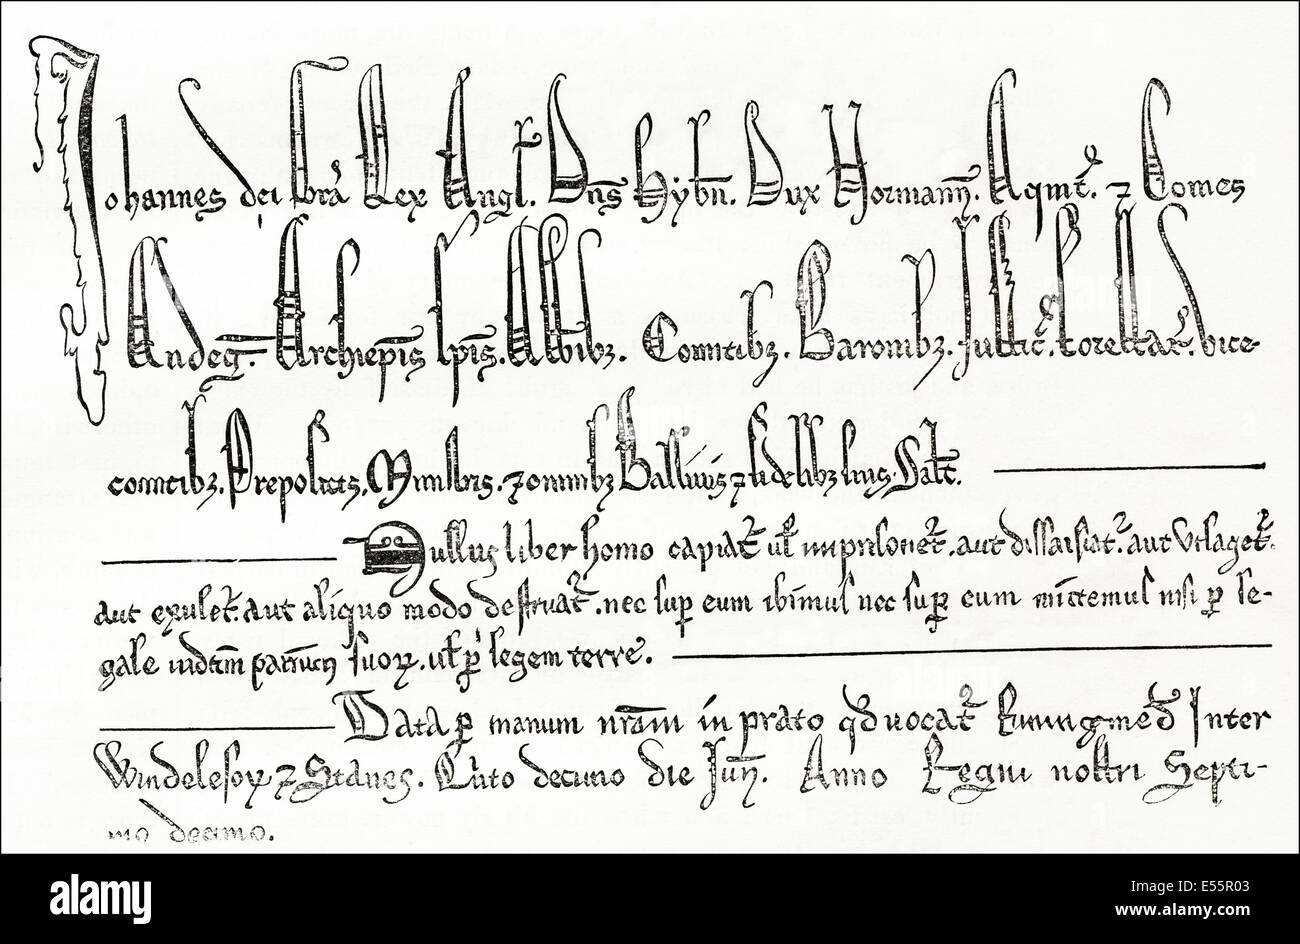 Johannes dei Gra Rex Angl. Dns Hybn. Dux Normann. Aqmt. 7 Comes
Andeg. Archiepis Epis. Abbibz. Comitibz. Baronibz. Justic. Forestar. vice-
comitibz. Prepositis. Ministris. 7 omnibz Ballivis 7 fidelibz suis. Salt.
Nullus liber homo capiat. ul imprisonet. aut dissaisiat. aut utlaget.
aut exulet. aut aliquo modo destruat. nec sup eum ibimus nec sup eum mittemus nisi p le-
gale iudicium parium suor. ul p legem terre.
Data p manum nram in prato qd vocat Runingmed Inter
Windelesor 7 Stanes. Quinto decimo die Jun. Anno Regni nostri Septi-
mo decimo.
alamy stock photo
E55R03
www.alamy.com